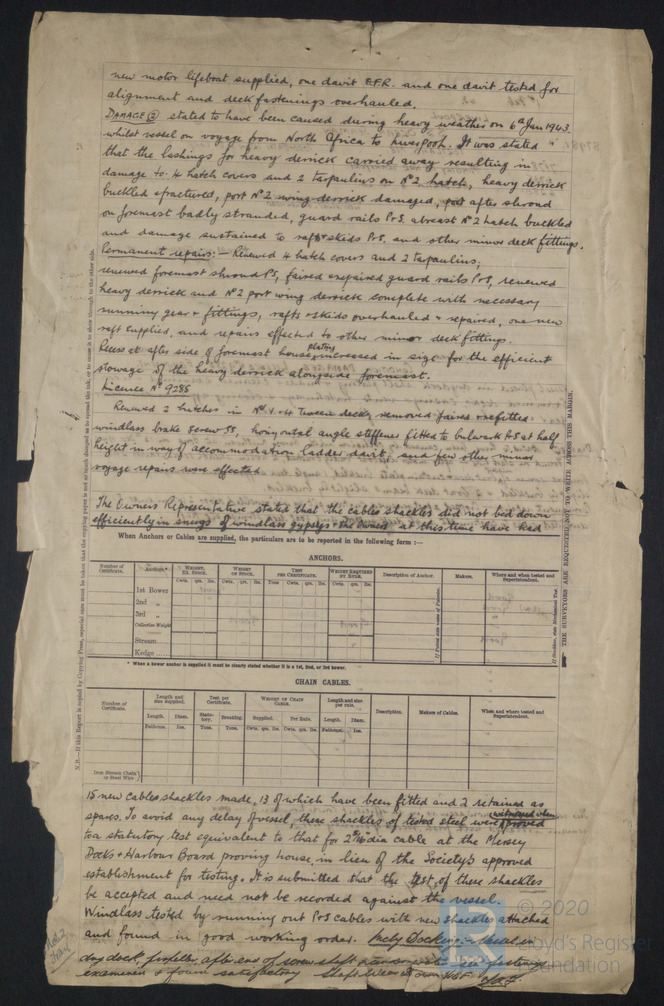 new motor lifeboat supplied, one davit F.F.R. and one davit tested for
alignment and deck fastenings overhauled.
DAMAGE (2) stated to have been caused during heavy weather on 6th Jan 1943
whilst vessel on voyage from North Africa to Liverpool. It was stated
that the lashings for heavy derrick carried away resulting in
damage to 4 hatch covers and 2 tarpaulins on No 2 hatch, heavy derrick
buckled & fractured, port No 2 wing derrick damaged, port after shroud
on foremast badly stranded, guard rails P&S. abreast No 2 hatch buckled
and damage sustained to rafts & skids P&S. and other minor deck fittings.
Permanent repairs:- Renewed 4 hatch covers and 2 tarpaulins,
renewed foremast shroud PS, faired & repaired guard rails P&S, renewed
heavy derrick and No 2 port wing derrick complete with necessary
running gear & fittings, rafts & skids overhauled & repaired, one new
raft supplied, and repairs effected to other minor deck fittings.
Recess at after side of foremast house plating increased in size for the efficient
stowage of the heavy derrick alongside foremast.
Licence No 9285
Renewed 2 hatches in No 1 & 4 Tween decks, removed faired & refitted
windlass brake screw SS, horizontal angle stiffener fitted to bulwark P&S at half
height in way of accommodation ladder davit, and few other minor
voyage repairs were effected.
The Owners Representative stated that the cables shackles did not bed down
efficiently in snugs of windlass gypseys & the Owners at this time have had
When Anchors or Cables are supplied, the particulars are to be reported in the following form :—
ANCHORS.
Number of Certificate. Anchors.* Weight, Ex. Stock. Weight of Stock. Test per Certificate. Weight Required by Rule. Description of Anchor. Makers. Where and when tested and Superintendent.
Cwts. qrs. lbs. Cwts. qrs. lbs. Tons Cwts. qrs. lbs. Cwts. qrs. lbs.
1st Bower
2nd „
3rd „
Collective Weight
Stream
Kedge ......
* When a bower anchor is supplied it must be clearly stated whether it is a 1st, 2nd, or 3rd bower.
CHAIN CABLES.
Number of Certificate. Length and size supplied. Test per Certificate. Weight of Chain Cable. Length and size per rule. Description. Makers of Cables. When and where tested and Superintendent.
Length. Diam. Statutory. Breaking. Supplied. Per Rule. Length. Diam.
Fathoms. Ins. Tons. Tons. Cwts. qrs. lbs. Cwts. qrs. lbs. Fathoms. Ins.
Iron Stream Chain or Steel Wire
15 new cables shackles made, 13 of which have been fitted and 2 retained as
spares. To avoid any delay of vessel, these shackles of tested steel were witnessed when
to a statutory test equivalent to that for dia cable at the Mersey
Docks & Harbour Board proving house, in lieu of the Society's approved
establishment for testing. It is submitted that the test of these shackles
be accepted and need not be recorded against the vessel.
Windlass tested by running out P&S cables with new shackles attached
and found in good working order. Docking:- Vessel in
dry dock, propeller, after end of screw shaft, sea fastenings
examined & found satisfactory
N.B.—If this Report is copied by Copying Press, especial care must be taken that the copying paper is not so much damped as to spread the ink, or to cause it to show through to the other side.
THE SURVEYORS ARE REQUESTED NOT TO WRITE ACROSS THIS MARGIN.
© 2020
Lloyd's Register
Foundation